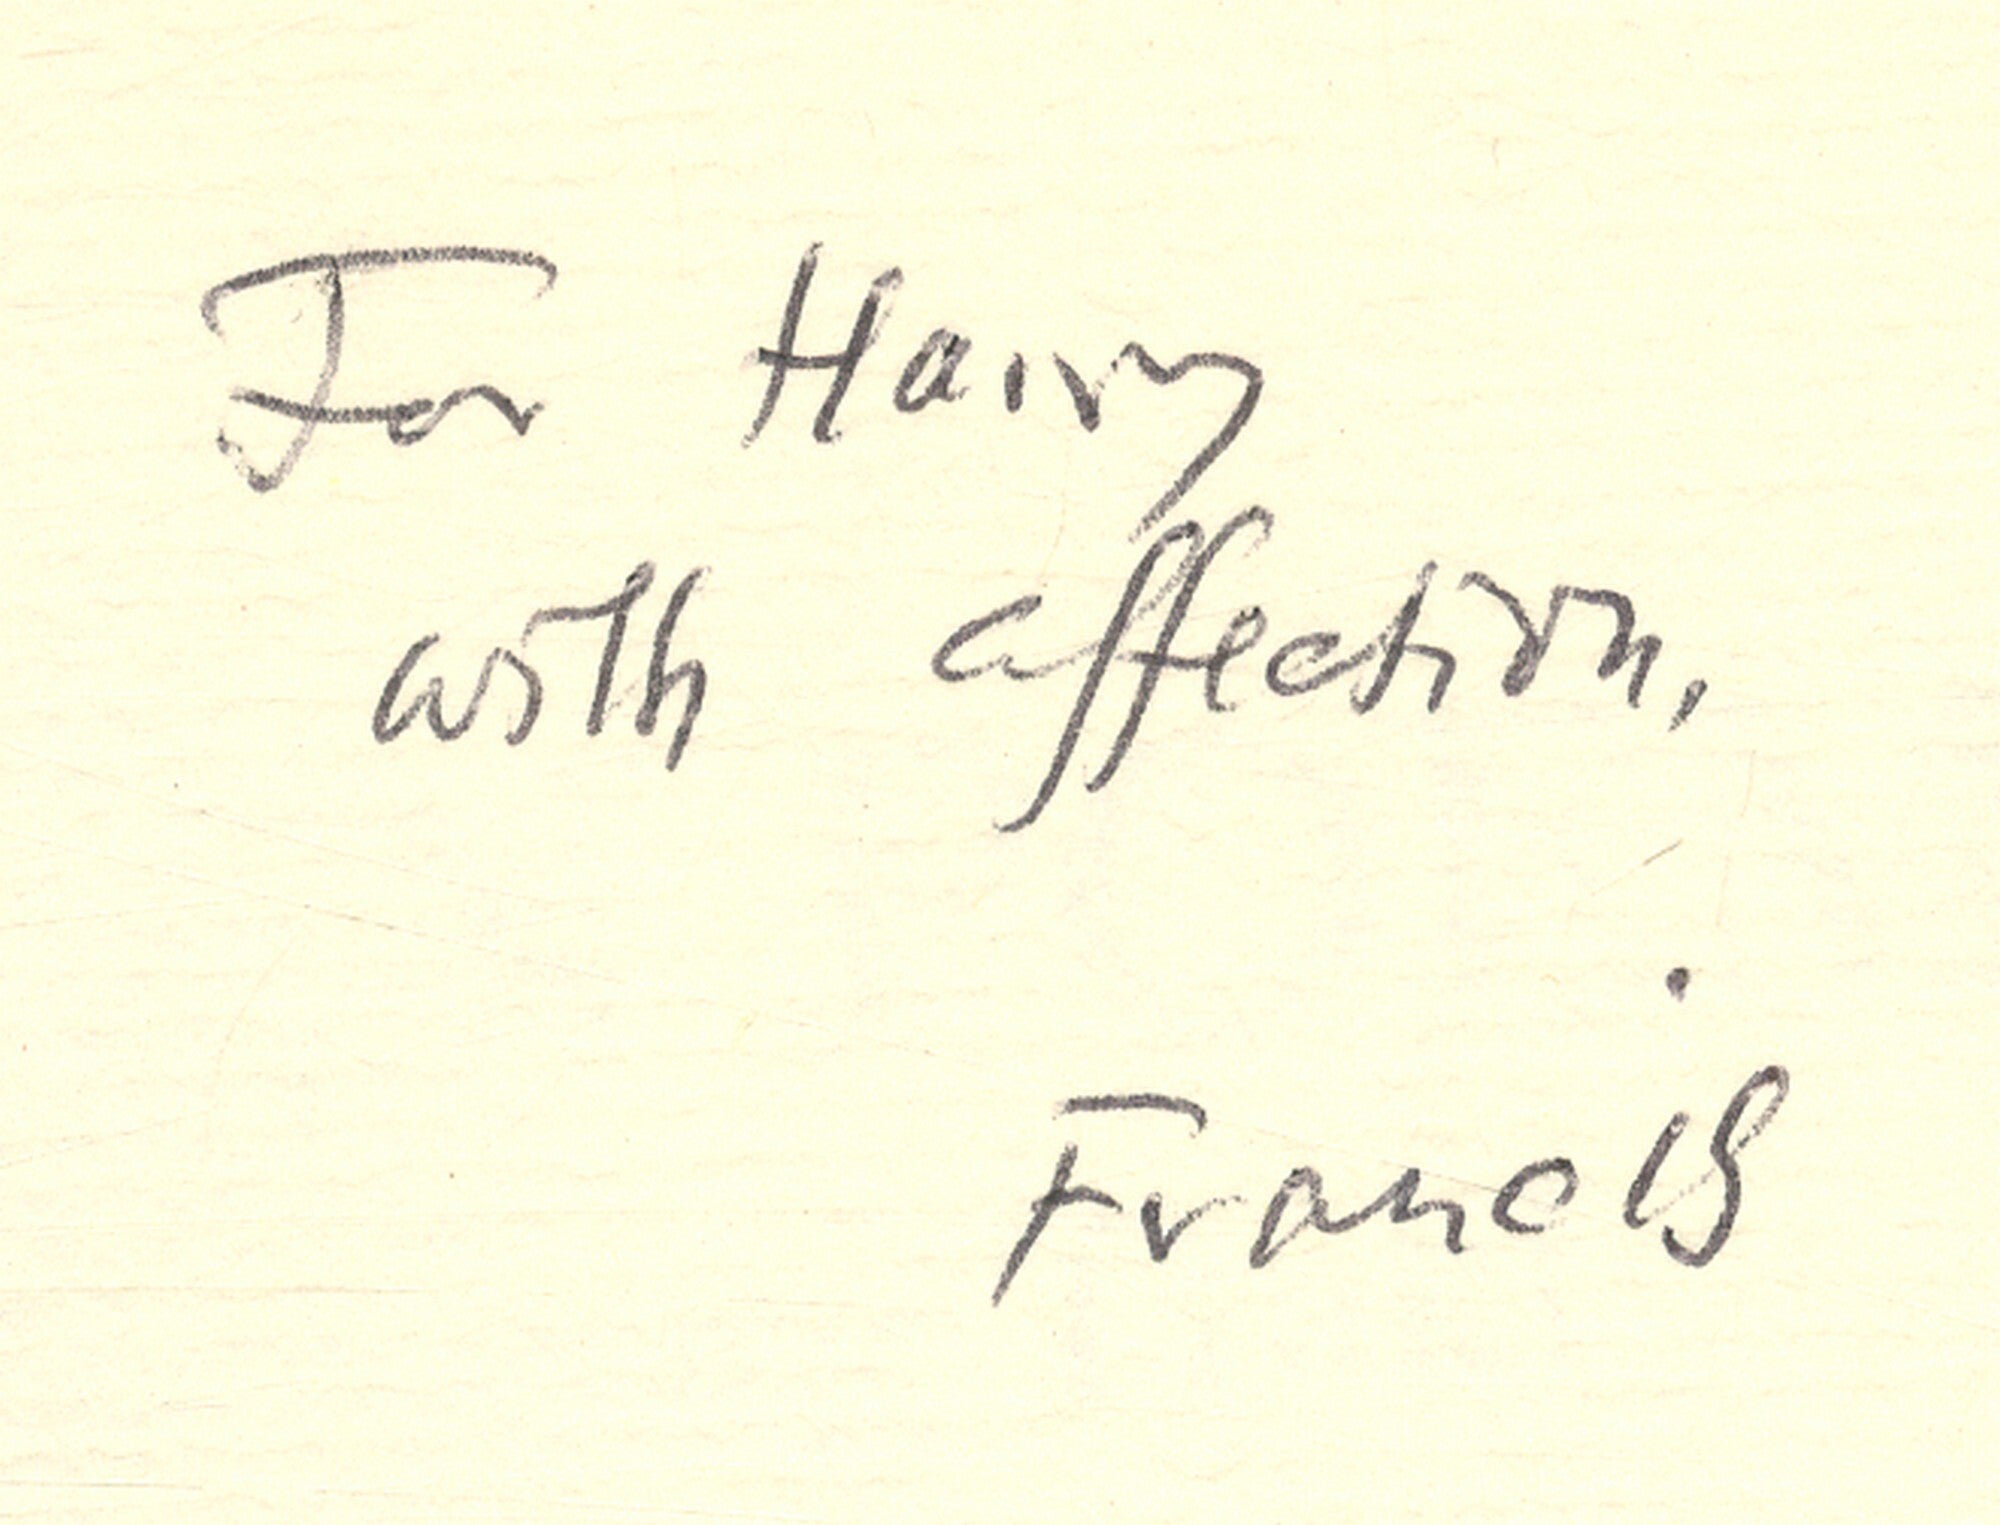 For Harry
with affection,
Francis